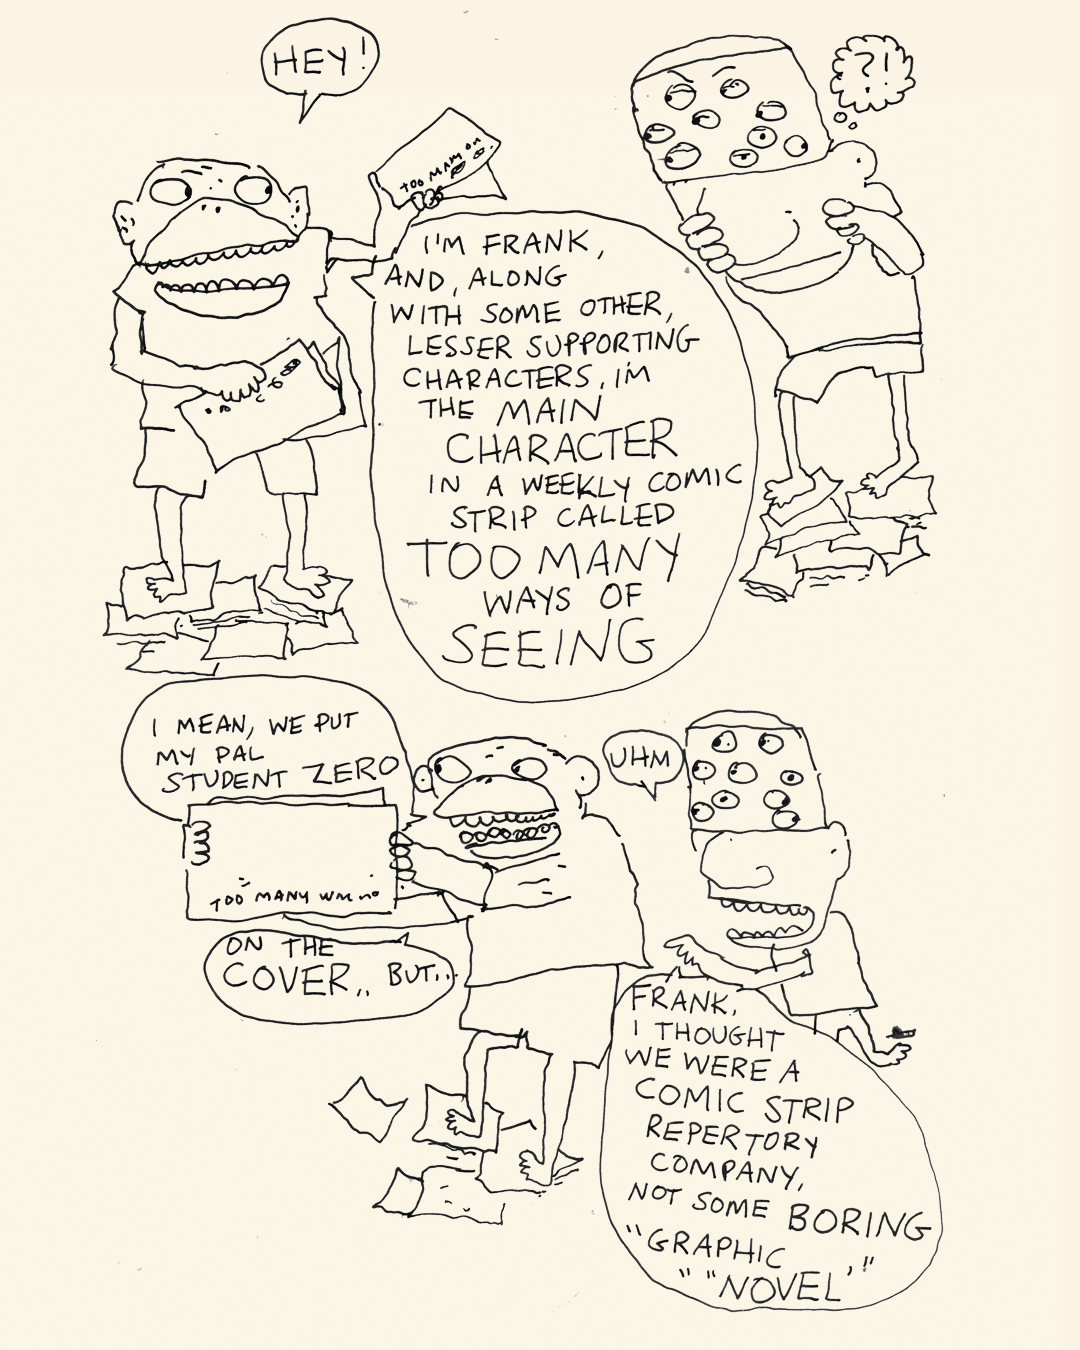 HEY!
?!
TOO MANY
I'M FRANK,
AND, ALONG
WITH SOME OTHER,
LESSER SUPPORTING
CHARACTERS, I'M
THE MAIN
CHARACTER
IN A WEEKLY COMIC
STRIP CALLED
TOO MANY
WAYS OF
SEEING
I MEAN, WE PUT
MY PAL
STUDENT ZERO
TOO MANY
ON THE
COVER,, BUT...
UHM
FRANK,
I THOUGHT
WE WERE A
COMIC STRIP
REPERTORY
COMPANY,
NOT SOME BORING
"GRAPHIC
" "NOVEL' "